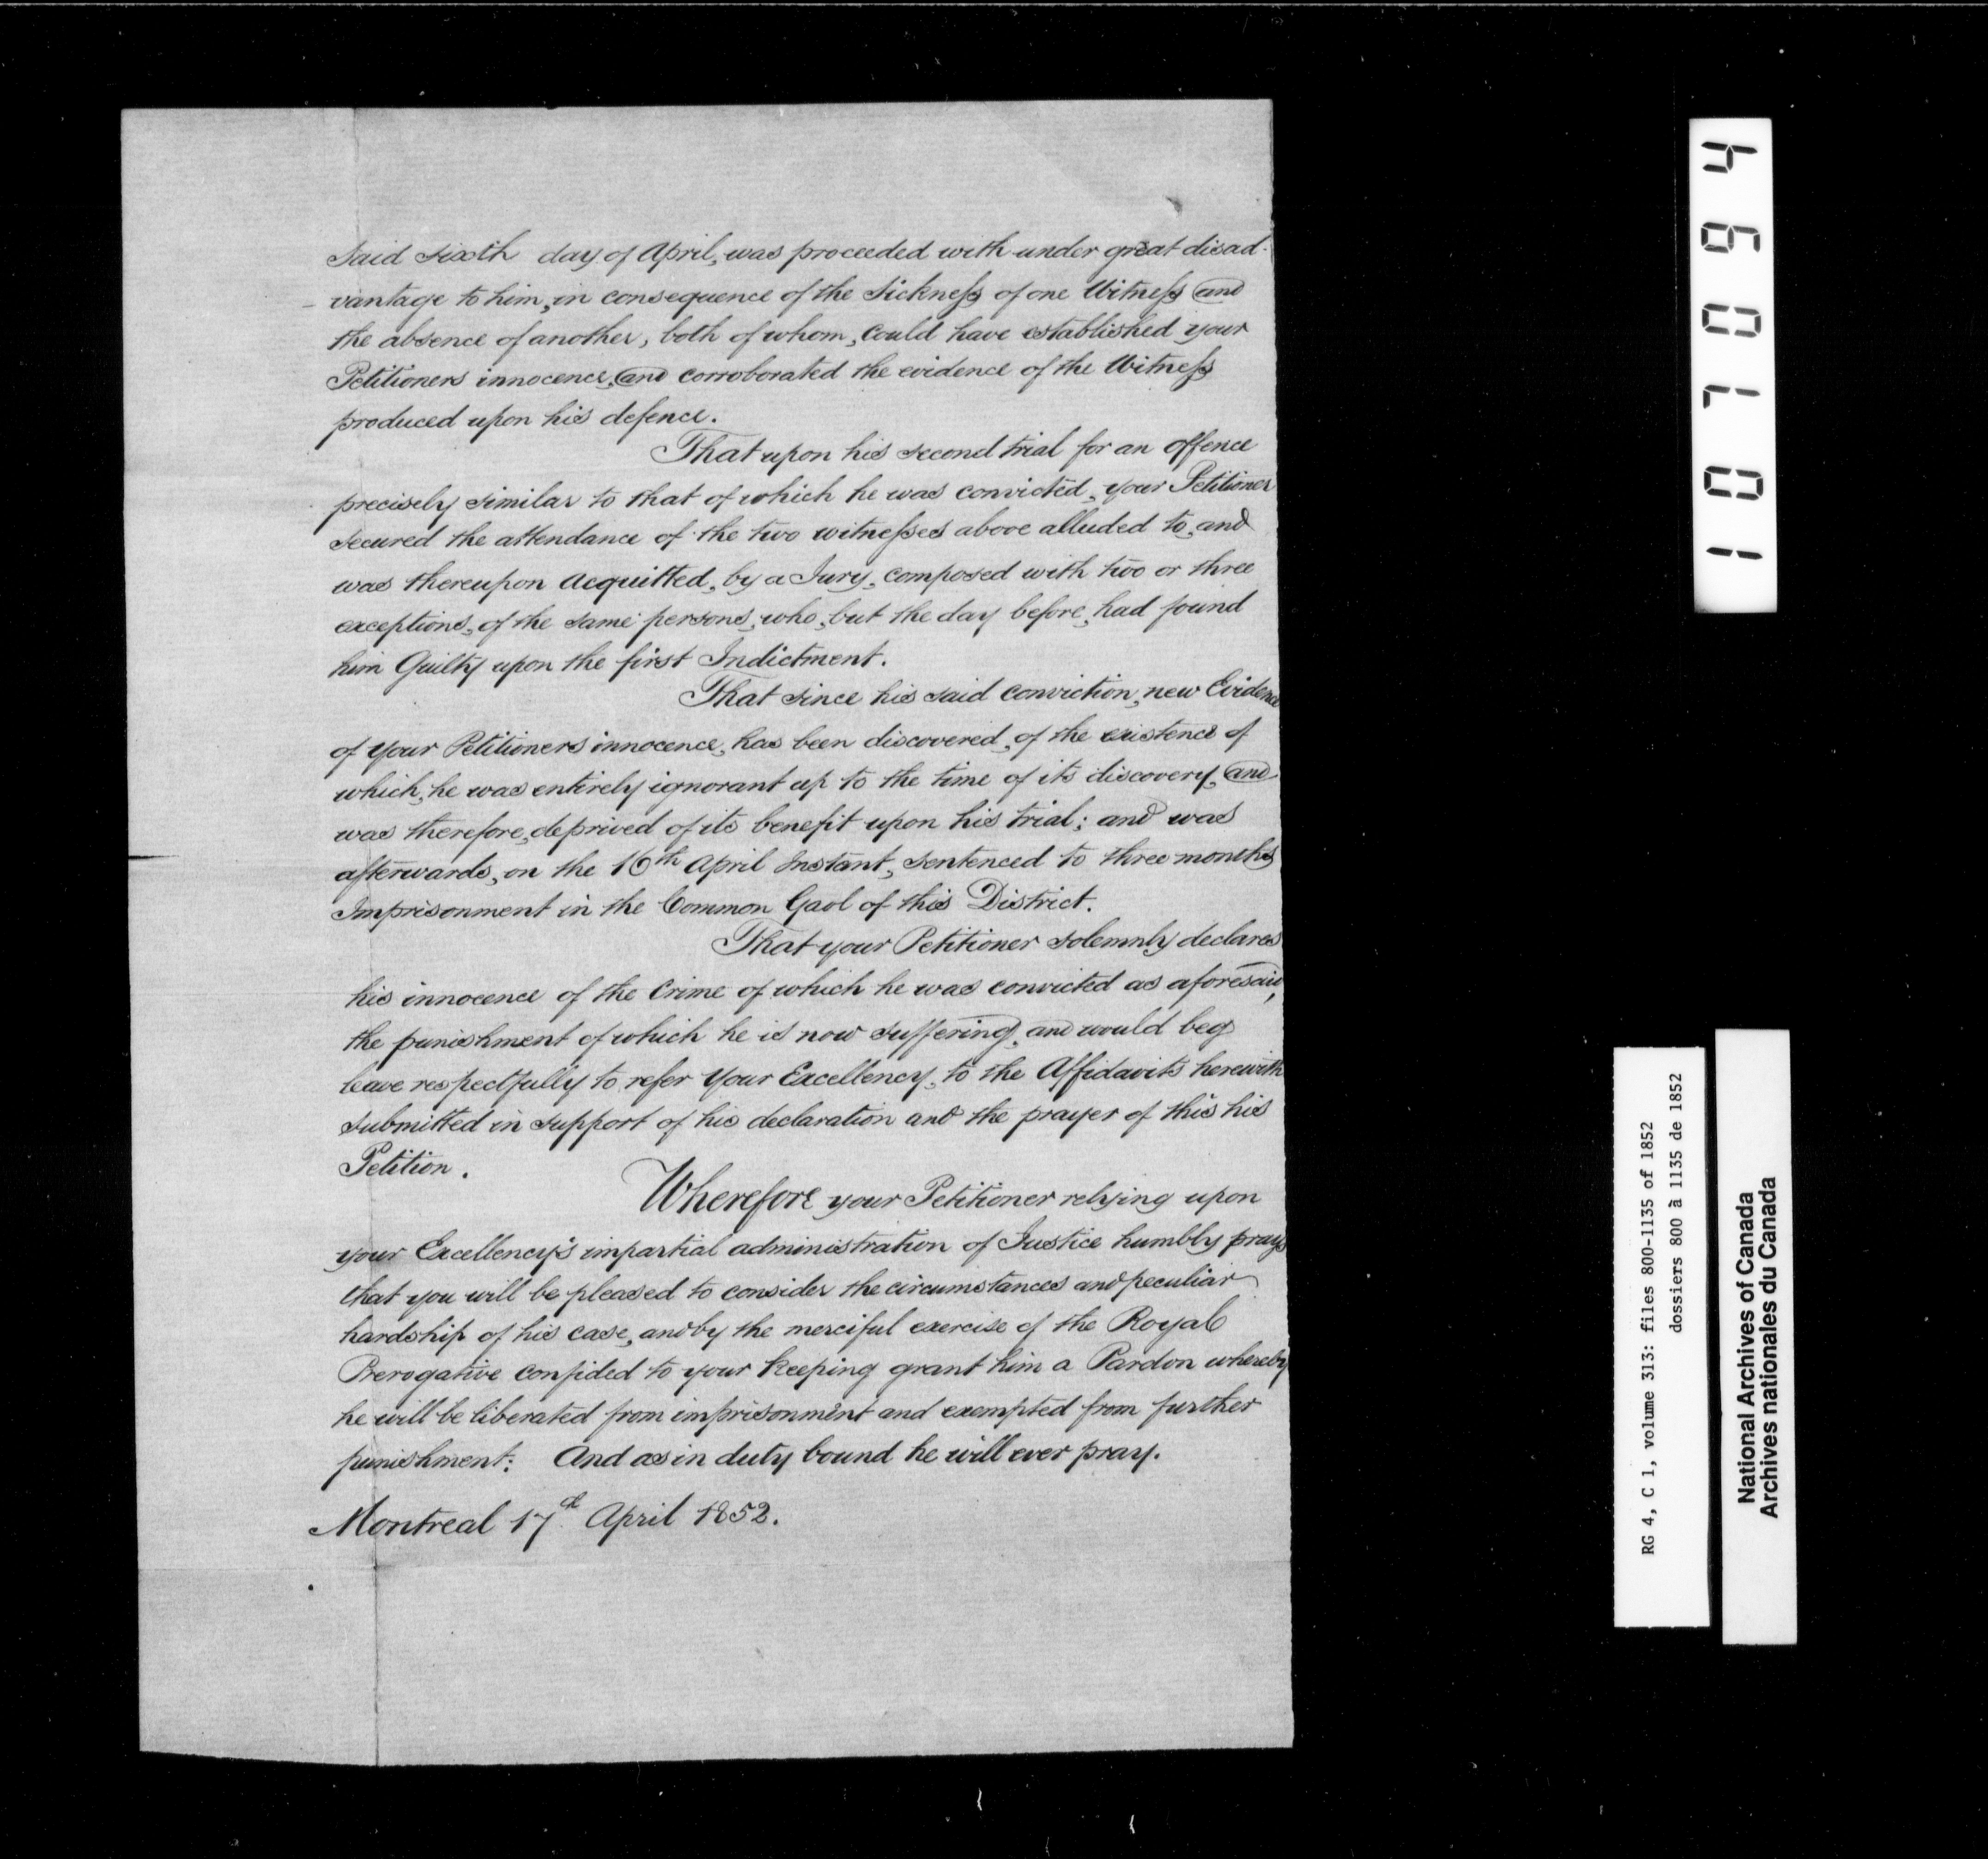 said sixth day of April, was proceeded with under great disad-
-vantage to him, in consequence of the Sickness of one Witness and
the absence of another, both of whom, could have established your
Petitioners innocence, and corroborated the evidence of the Witness
produced upon his defence.
That upon his second trial for an offence
precisely similar to that of which he was convicted, your Petitioner
secured the attendance of the two witnesses above alluded to, and
was thereupon acquitted, by a Jury, composed with two or three
exceptions, of the same persons, who, but the day before, had found
him Guilty upon the first Indictment.
That since his said conviction, new Evidence
of your Petitioners innocence, has been discovered, of the existence of
which, he was entirely ignorant up to the time of its discovery, and
was therefore, deprived of its benefit upon his trial; and was
afterwards, on the 16th April Instant, sentenced to three months
Imprisonment in the Common Gaol of this District.
That your Petitioner solemnly declares
his innocence of the Crime of which he was convicted as aforesaid,
the punishment of which he is now suffering, and would beg
leave respectfully to refer Your Excellency, to the Affidavits herewith
submitted in support of his declaration and the prayer of this his
Petition.
Wherefore your Petitioner relying upon
your Excellency's impartial administration of Justice humbly prays
that you will be pleased to consider the circumstances and peculiar
hardship of his case, and by the merciful exercise of the Royal
Prerogative confided to your keeping grant him a Pardon whereby
he will be liberated from imprisonment and exempted from further
punishment: And as in duty bound he will ever pray.
Montreal 17d April 1852.
107094
RG 4, C 1, volume 313: files 800-1135 of 1852
dossiers 800 à 1135 de 1852
National Archives of Canada
Archives nationales du Canada